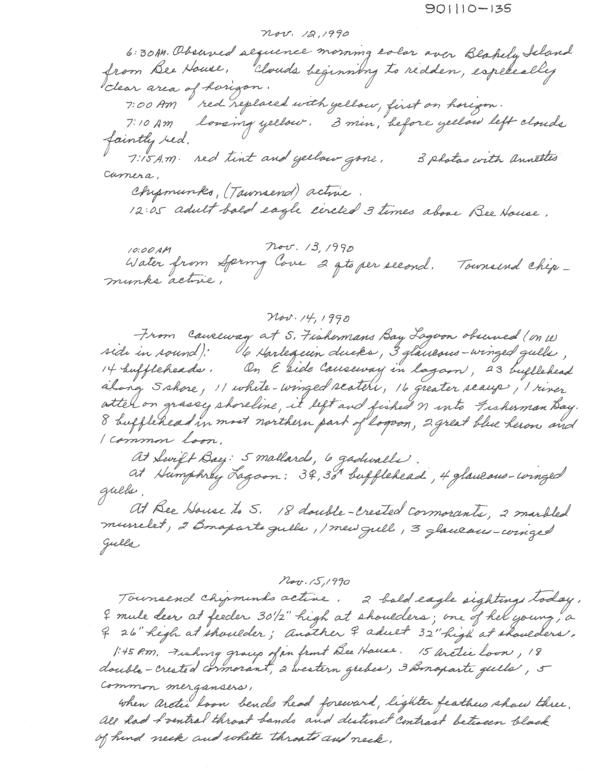 901110-135
Nov. 12, 1990
6:30 AM. Observed sequence morning color over Blakely Island
from Bee House. Clouds beginning to redden, especially
clear area of horizon.
7:00 AM red replaced with yellow, first on horizon.
7:10 AM loosing yellow. 3 min, before yellow left clouds
faintly red.
7:15 A.M. red tint and yellow gone. 3 photos with Annettes
camera.
Chipmunks, (Townsend) active.
12:05 adult bald eagle circled 3 times above Bee House.
10:00 AM Nov. 13, 1990
Water from Spring Cove 2 qts per second. Townsend chip-
munks active.
Nov. 14, 1990
From Causeway at S. Fishermans Bay Lagoon observed (on W
side in sound): 6 Harlequin ducks, 3 glaucous-winged gulls,
14 buffleheads. On E side Causeway in lagoon, 23 bufflehead
along S shore, 11 white-winged scoters, 16 greater scaup, 1 river
otter on grassy shoreline, it left and fished N into Fisherman Bay.
8 bufflehead in most northern part of lagoon, 2 great blue heron and
1 common loon.
At Swift Bay: 5 mallards, 6 gadwalls.
At Humphrey Lagoon: 3♀, 3♂ bufflehead, 4 glaucous-winged
gulls.
At Bee House to S. 18 double-crested cormorants, 2 marbled
murrelet, 2 Bonaparte gulls, 1 mew gull, 3 glaucous-winged
gulls
Nov. 15, 1990
Townsend chipmunks active. 2 bald eagle sightings today.
♀ mule deer at feeder 30½" high at shoulders; one of her young, a
♀ 26" high at shoulder; another ♀ adult 32" high at shoulders.
1:45 P.M. Fishing group in front Bee House. 15 Arctic loon, 18
double-crested cormorant, 2 western grebes, 3 Bonaparte gulls, 5
common mergansers.
When Arctic loon bends head foreward, lighter feathers show there.
All had ventral throat bands and distinct contrast between black
of hind neck and white throats and neck.